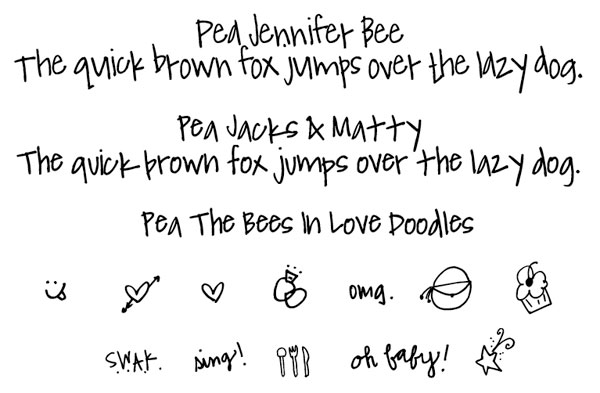 Pea Jennifer Bee
The quick brown fox jumps over the lazy dog.
Pea Jacks & Matty
The quick brown fox jumps over the lazy dog.
Pea The Bees In Love Doodles
omg.
S.W.A.K. sing! oh baby!